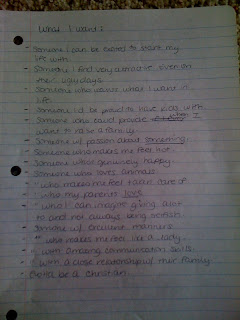 What I want:
- Someone I can be excited to start my
life with.
- Someone I find very attractive even on
their "ugly days"
- Someone who wants what I want in
life.
- Someone I'd be proud to have kids with
- Someone who could provide when I
want to raise a family.
- Someone w/ passion about something.
- Someone who makes me feel hot.
- Someone who's genuinely happy.
- Someone who loves animals.
- " who makes me feel taken care of
- " who my parents love.
- " who I can imagine giving
to and not always being selfish.
- Someone w/ genuine manners
- " who makes me feel like a lady.
- " with amazing communication skills.
- " with a close relationship w/ their family.
- Gotta be a Christian.